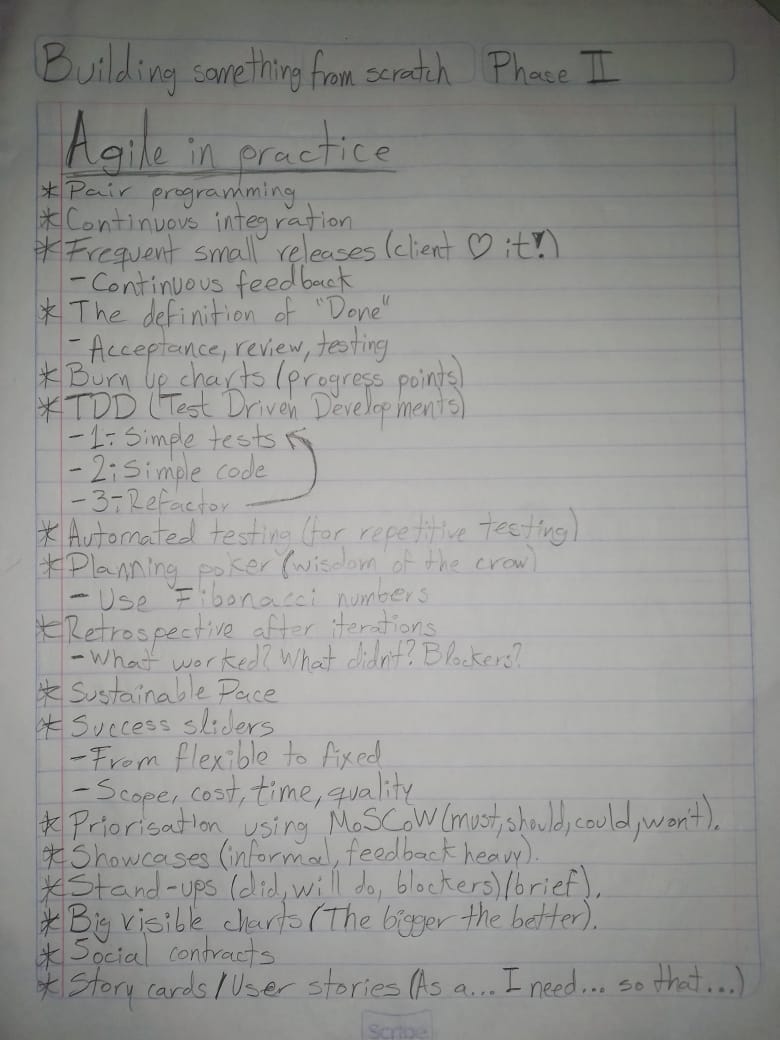 Building something from scratch Phase II
Agile in practice
* Pair programming
* Continuous integration
* Frequent small releases (client ♡ it!)
- Continuous feedback
* The definition of "Done"
- Acceptance, review, testing
* Burn up charts (progress points)
* TDD (Test Driven Developments)
- 1-: Simple tests
- 2; Simple code
- 3-: Refactor
* Automated testing (for repetitive testing)
* Planning poker (wisdom of the crow)
- Use Fibonacci numbers
* Retrospective after iterations
- What worked? What didn't? Blockers?
* Sustainable Pace
* Success sliders
- From flexible to fixed
- Scope, cost, time, quality
* Priorisation using MoSCoW (must, should, could, won't).
* Showcases (informal, feedback heavy).
* Stand-ups (did, will do, blockers) (brief).
* Big visible charts (The bigger the better).
* Social contracts
* Story cards / User stories (As a... I need... so that...)
Scribe